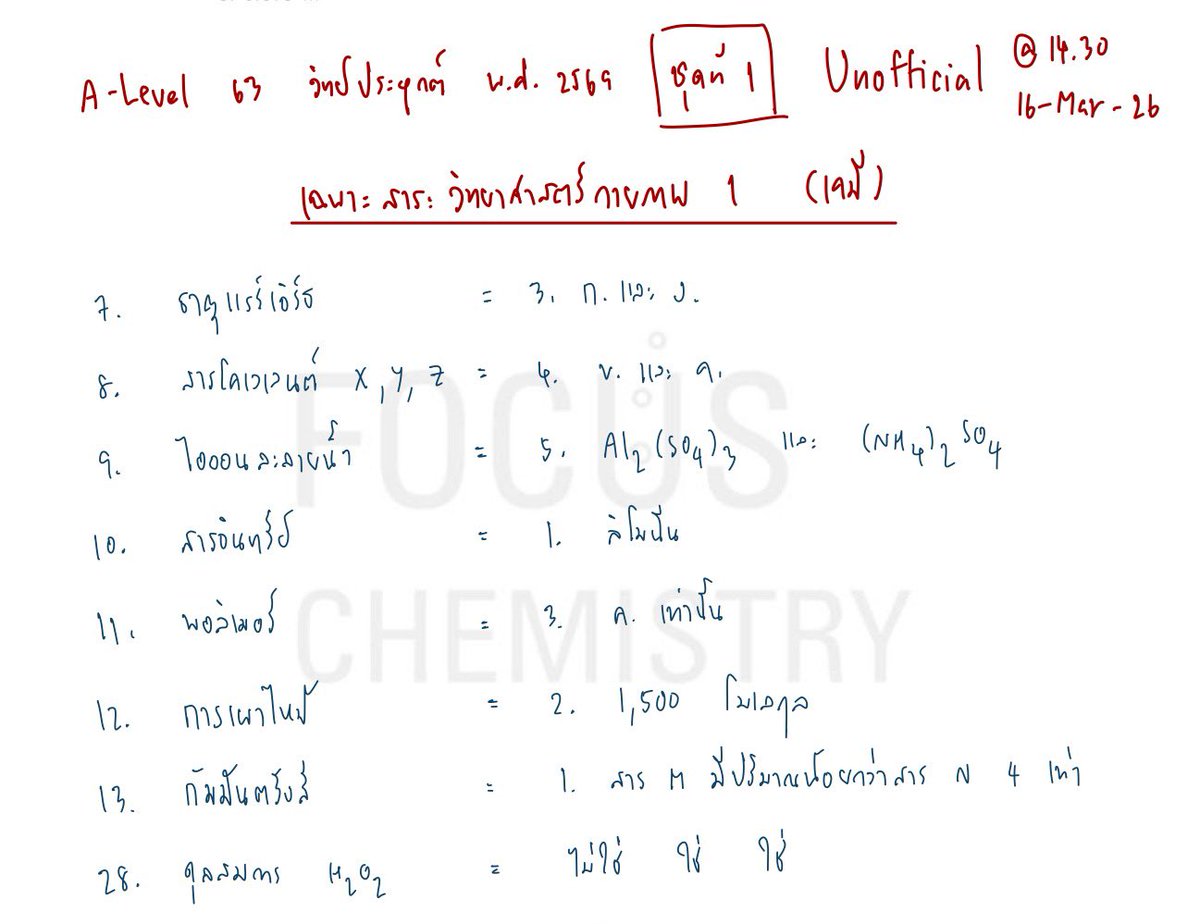 A-Level 63 วิทย์ประยุกต์ พ.ศ. 2569 ชุดที่ 1 Unofficial @ 14.30 16-Mar-26
เฉพาะสาระวิทยาศาสตร์กายภาพ 1 (เคมี)
7. ธาตุแรร์เอิร์ธ = 3. ก. และ ง.
8. สารโคเวเลนต์ X, Y, Z = 4. ข. และ ค.
9. ไอออนละลายน้ำ = 5. Al2(SO4)3 และ (NH4)2SO4
10. สารอินทรีย์ = 1. ลิโมนีน
11. พอลิเมอร์ = 3. ค. เท่านั้น
12. การเผาไหม้ = 2. 1,500 โมเลกุล
13. กัมมันตรังสี = 1. สาร M มีปริมาณน้อยกว่าสาร N 4 เท่า
28. ดุลสมการ H2O2 = ไม่ใช่ ใช่ ใช่
FOCUS
CHEMISTRY